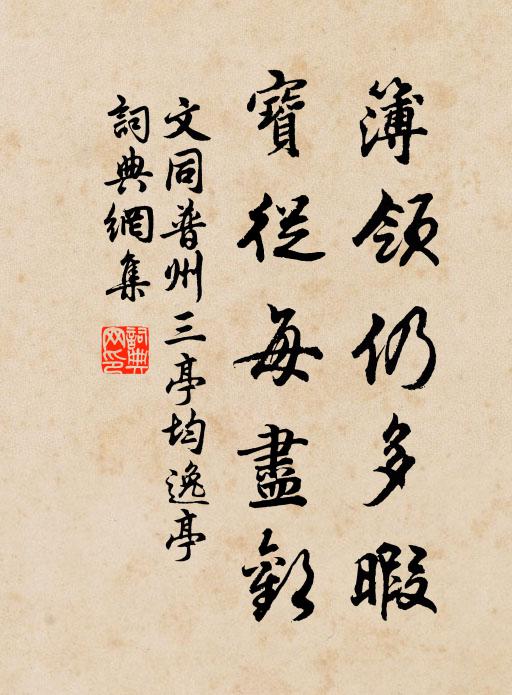 簿領仍多暇
寶從每盡歡
文同普州三亭均逸亭
詞典網集
詞典
网印